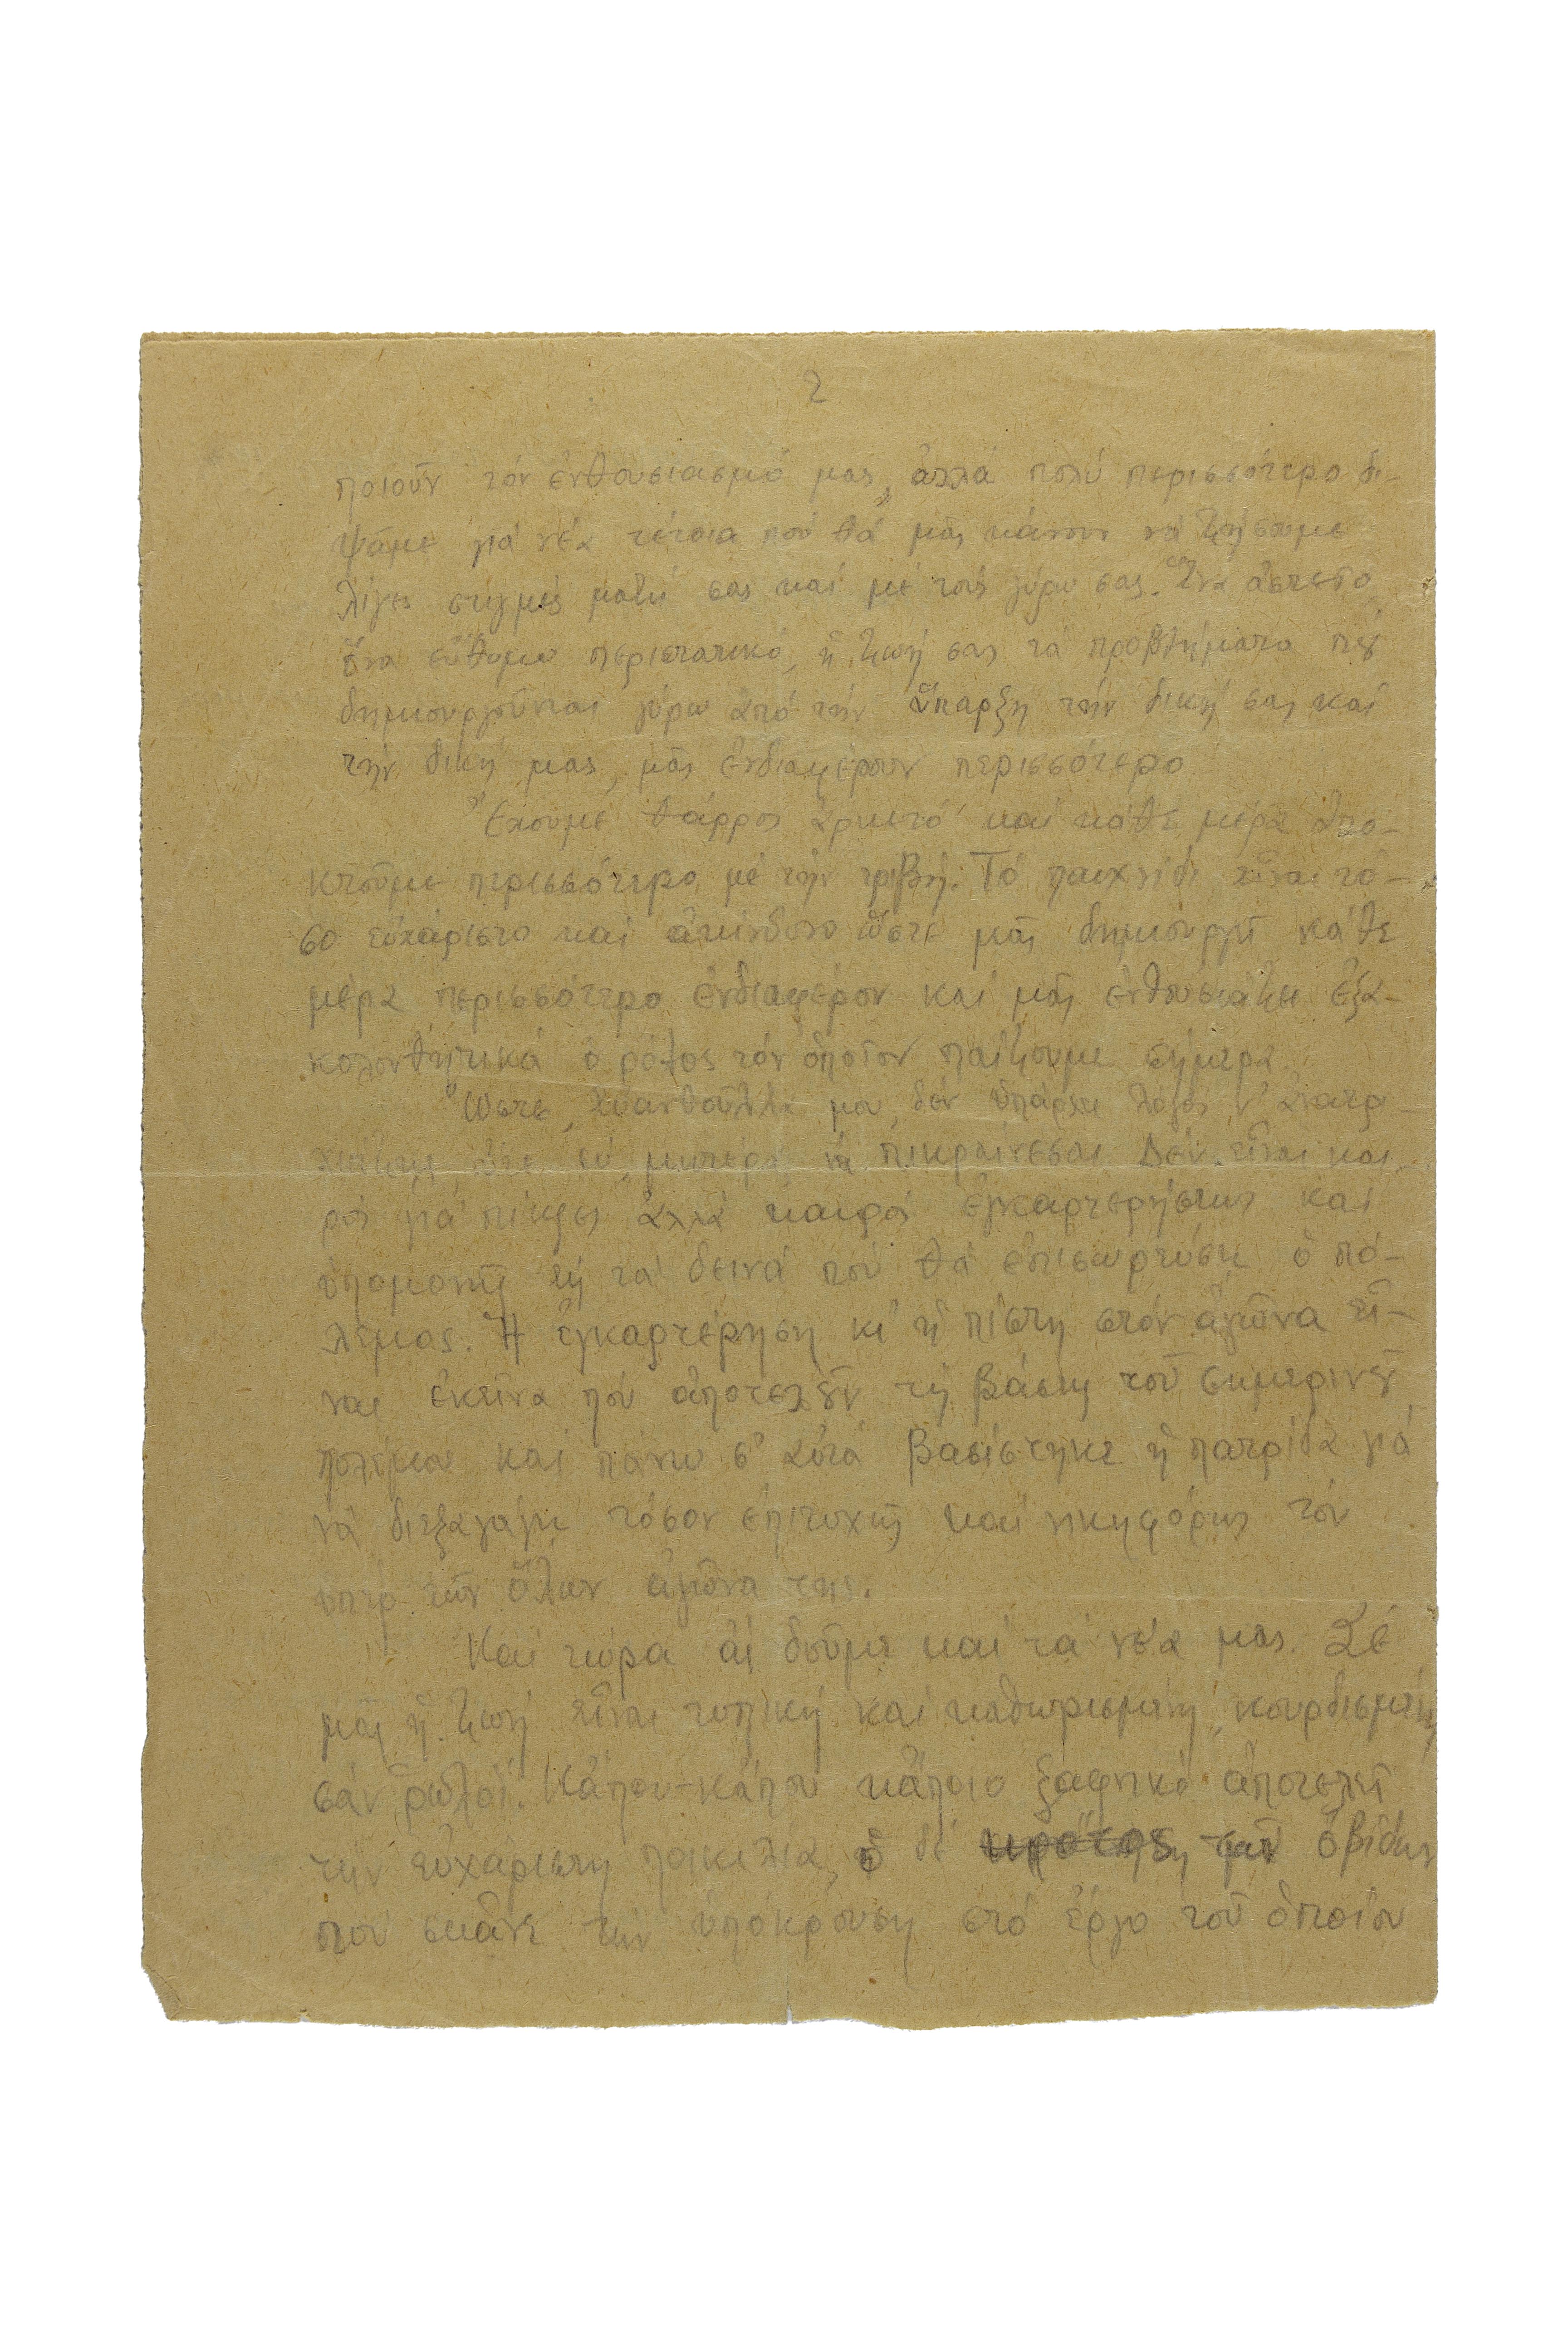 2
ποιοῦν τόν ἐνθουσιασμό μας, ἀλλά πολύ περισσότερο δι-
ψᾶμε γιά νέα τέτοια πού θά μᾶς κάνουν νά ζήσουμε
λίγες στιγμές μαζύ σας καί μέ τούς γύρω σας. Ἕνα ἀστεῖο
ἕνα εὔθυμο περιστατικό, ἡ ζωή σας τά προβλήματα πȣ́
δημιουργοῦνται γύρω ἀπό τήν ὕπαρξη τήν δική σας καί
τήν δική μας, μᾶς ἐνδιαφέρουν περισσότερο
Ἔχουμε θάρρος ἀρκετό καί κάθε μέρα ἀπο-
κτοῦμε περισσότερο μέ τήν τριβή. Τό παιχνίδι εἶναι τό-
σο εὐχάριστο καί ἀκίνδυνο ὥστε μᾶς δημιουργεῖ κάθε
μέρα περισσότερο ἐνδιαφέρον καί μᾶς ἐνθουσιάζει ἐξα-
κολουθητικά ὁ ρόλος τόν ὁποῖον παίζουμε σήμερα.
Ὥστε, μου, δέν ὑπάρχει λόγος ν'
οὔτε σύ, μητέρα νά πικραίνεσαι. Δέν εἶναι και-
ρός γιά πίκρες ἀλλά καιρός ἐγκαρτερήσεως καί
ὑπομονῆς τά δεινά πού θά ἐπισωρεύσει ὁ πό-
λεμος. Ἡ ἐγκαρτέρηση κι' ἡ πίστη στόν ἀγῶνα εἶ-
ναι ἐκεῖνα πού ἀποτελȣ͂ν τή βάση τοῦ σημερινȣ͂
πολέμου καί πάνω σ' αὐτά βασίστηκε ἡ πατρίδα γιά
νά διεξαγάγει τόσον ἐπιτυχῶς καί νικηφόρως τόν
ὑπέρ τῶν ὅλων ἀγῶνα της.
Καί τώρα ἄς δοῦμε καί τά νέα μας. Σέ
μᾶς ἡ ζωή εἶναι τυπική καί καθωρισμένη, κουρδισμένη
σάν ρωλόϊ. Κάπου-κάπου κάποιο ξαφνικό ἀποτελεῖ
τήν εὐχάριστη ποικιλία, ὁ δέ κρότος τῶν ὀβίδων
πού σκᾶνε τήν ὑπόκρουση στό ἔργο τοῦ ὁποίου